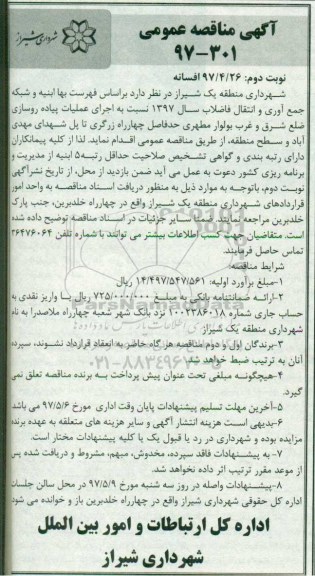 آگهی مناقصه عمومی
شهرداری شیراز
۹۷-۳۰۱
نوبت دوم: ۹۷/۴/۲۶ افسانه
شهرداری منطقه یک شیراز در نظر دارد براساس فهرست بها ابنیه و شبکه
جمع آوری و انتقال فاضلاب سال ۱۳۹۷ نسبت به اجرای عملیات پیاده روسازی
ضلع شرق و غرب بولوار مطهری حدفاصل چهارراه زرگری تا پل شهدای مهدی
آباد و سطح منطقه، از طریق مناقصه عمومی اقدام نماید. لذا از کلیه پیمانکاران
دارای رتبه بندی و گواهی تشخیص صلاحیت حداقل رتبه۵ ابنیه از مدیریت و
برنامه ریزی کشور دعوت به عمل می آید ضمن بازدید از محل، از تاریخ نشرآگهی
نوبت دوم، باتوجه به موارد ذیل به منظور دریافت اسناد مناقصه به واحد امور
قراردادهای شهرداری منطقه یک شیراز واقع در چهارراه خلدبرین، جنب پارک
خلدبرین مراجعه نمایند. ضمنا سایر جزئیات در اسناد مناقصه توضیح داده شده
است. متقاضیان جهت کسب اطلاعات بیشتر می توانند با شماره تلفن ۳۶۴۷۶۰۶۴
تماس حاصل فرمایند.
شرایط مناقصه:
۱-مبلغ برآورد اولیه: ۱۴/۴۹۷/۵۴۷/۵۶۱ ریال
۲-ارائه ضمانتنامه بانکی به مبلغ ۷۲۵/۰۰۰/۰۰۰ ریال یا واریز نقدی به
حساب جاری شماره ۱۰۰۲۳۸۶۰۱۸ نزد بانک شهر شعبه چهارراه ملاصدرا به نام
شهرداری منطقه یک شیراز
۳-برندگان اول و دوم مناقصه هر گاه حاضر به انعقاد قرارداد نشوند، سپرده
آنان به ترتیب ضبط خواهد شد.
۴-هیچگونه مبلغی تحت عنوان پیش پرداخت به برنده مناقصه تعلق نمی
گیرد.
۵-آخرین مهلت تسلیم پیشنهادات پایان وقت اداری مورخ ۹۷/۵/۶ می باشد.
۶-بدیهی است هزینه انتشار آگهی و سایر هزینه های متعلقه به عهده برنده
مزایده بوده و شهرداری در رد یا قبول یک یا کلیه پیشنهادات مختار است.
۷- به پیشنهادات فاقد سپرده، مخدوش، مبهم، مشروط و دریافت شده پس
از موعد مقرر ترتیب اثر داده نخواهد شد.
۸-پیشنهادات واصله در روز سه شنبه مورخ ۹۷/۵/۹ در محل سالن جلسات
اداره کل حقوقی شهرداری شیراز واقع در چهارراه خلدبرین باز و خوانده می شود.
اداره کل ارتباطات و امور بین الملل
شهرداری شیراز